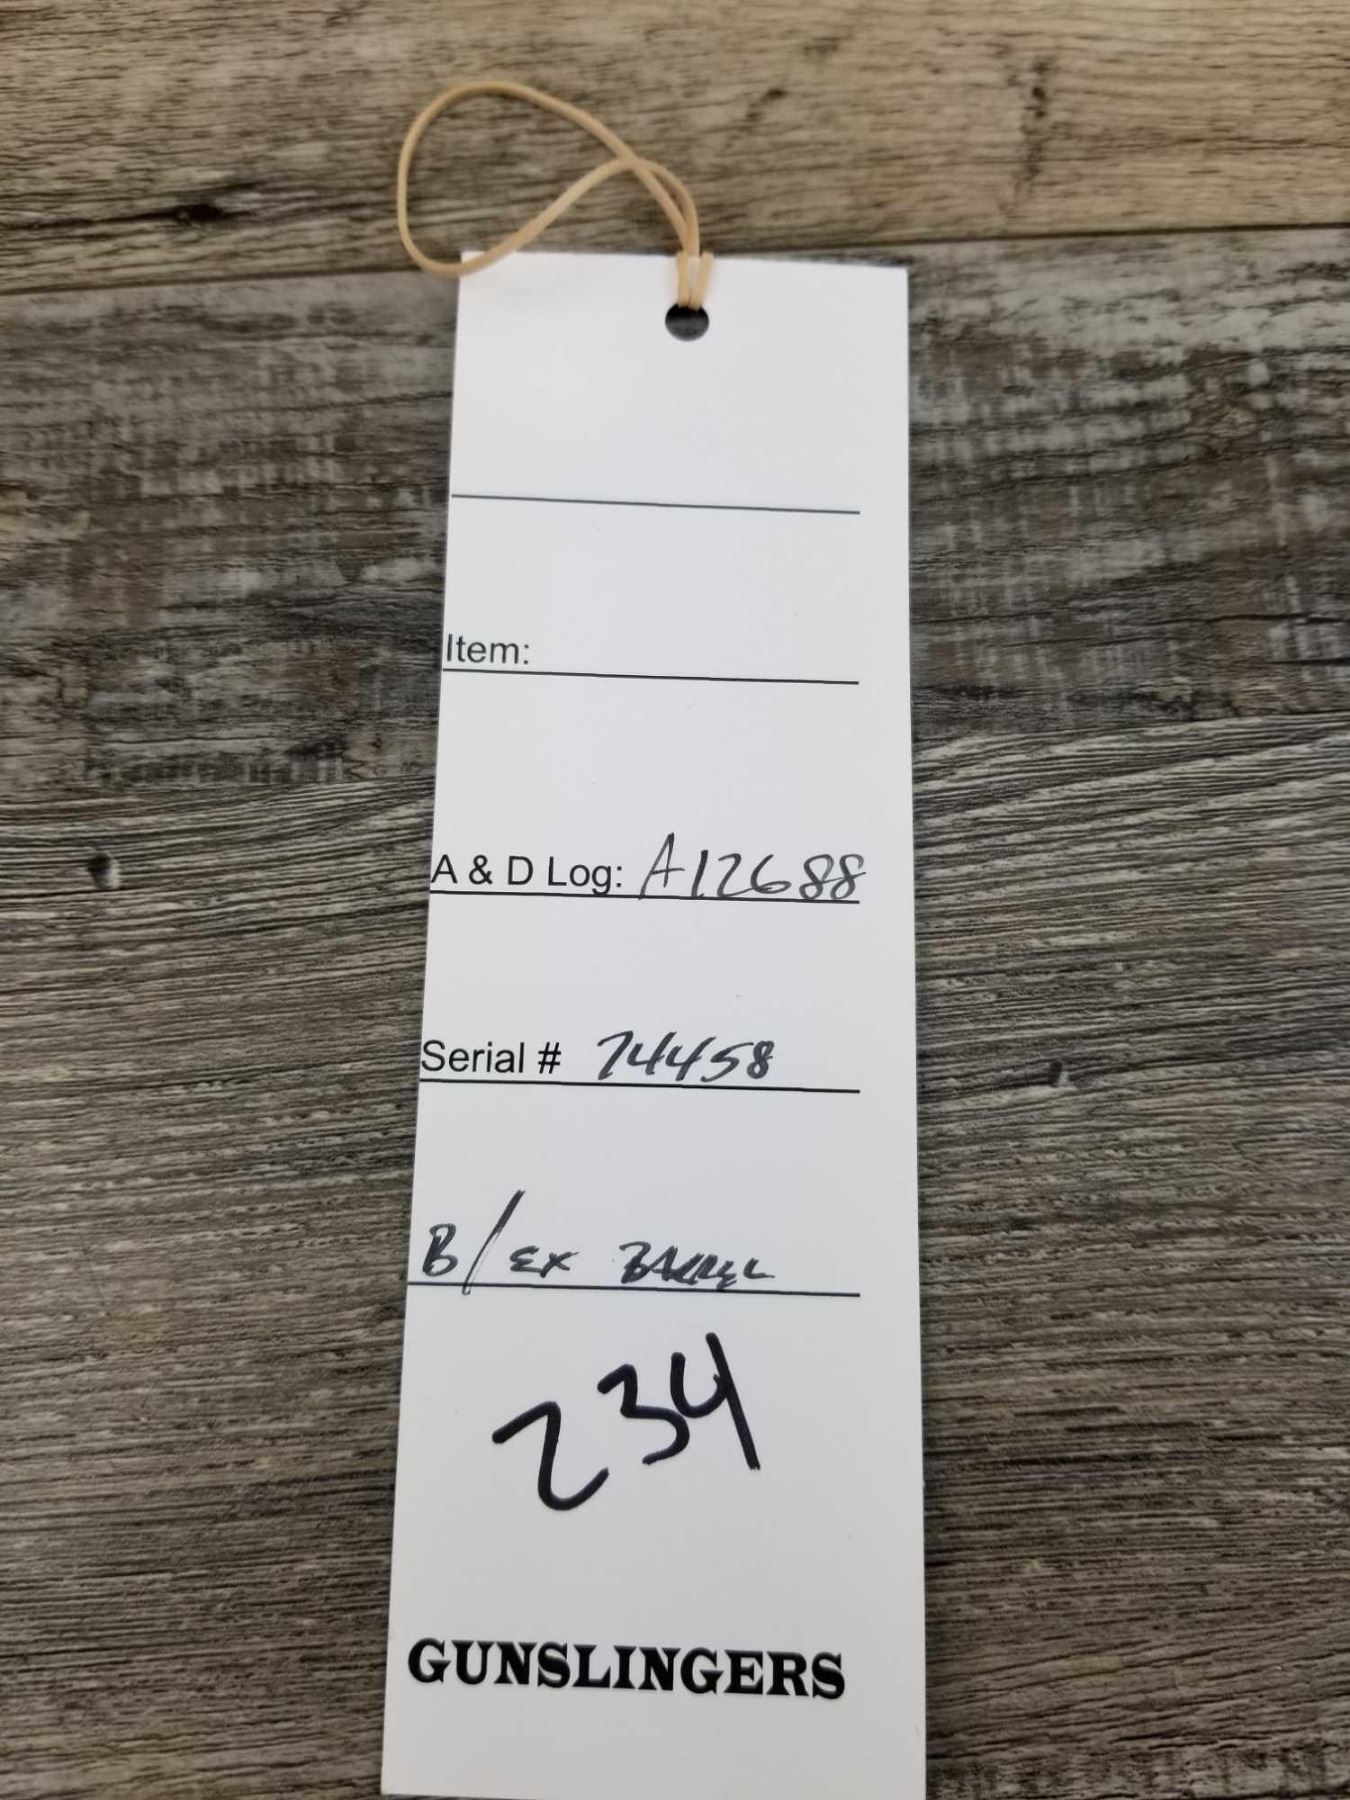 Item:
A & D Log: A12688
Serial # 74458
B/EX BARREL
234
GUNSLINGERS